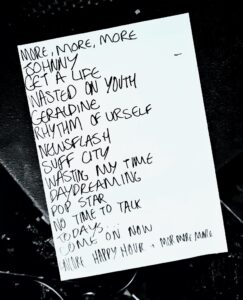 MORE, MORE, MORE
JOHNNY
GET A LIFE
WASTED ON YOUTH
GERALDINE
RHYTHM OF URSELF
NEWSFLASH
SUFF CITY
WASTING MY TIME
DAYDREAMING
POP STAR
NO TIME TO TALK
TODAYS...
COME ON NOW
MORE HAPPY HOUR + MOR MORE MORE